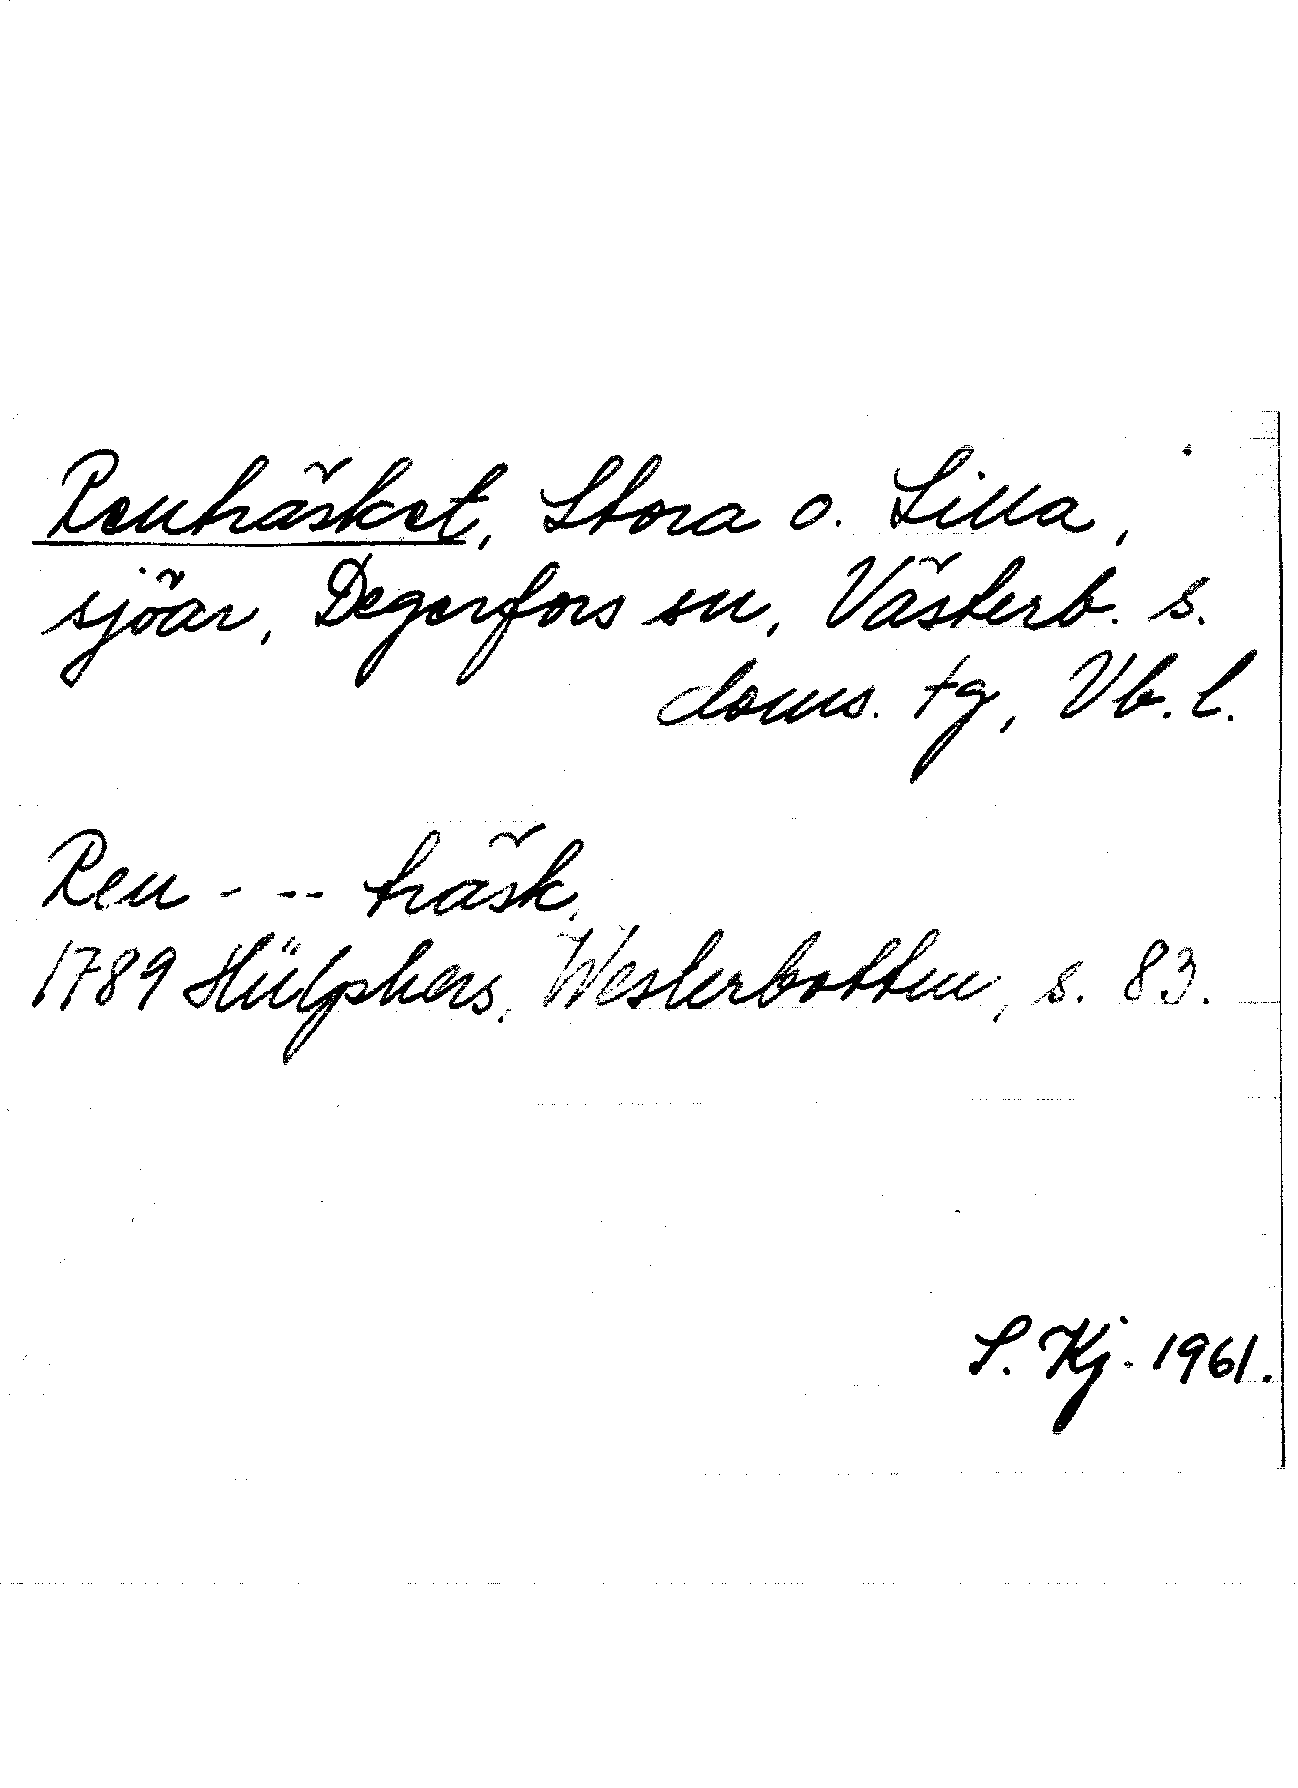 Renträsket, Stora o. Lilla,
sjöar, Degerfors sn, Västerb. s.
doms. tg, Vb. l.
Ren - - - träsk,
1789 Hülphers, Westerbotten, s. 83.
S. Kj. 1961.